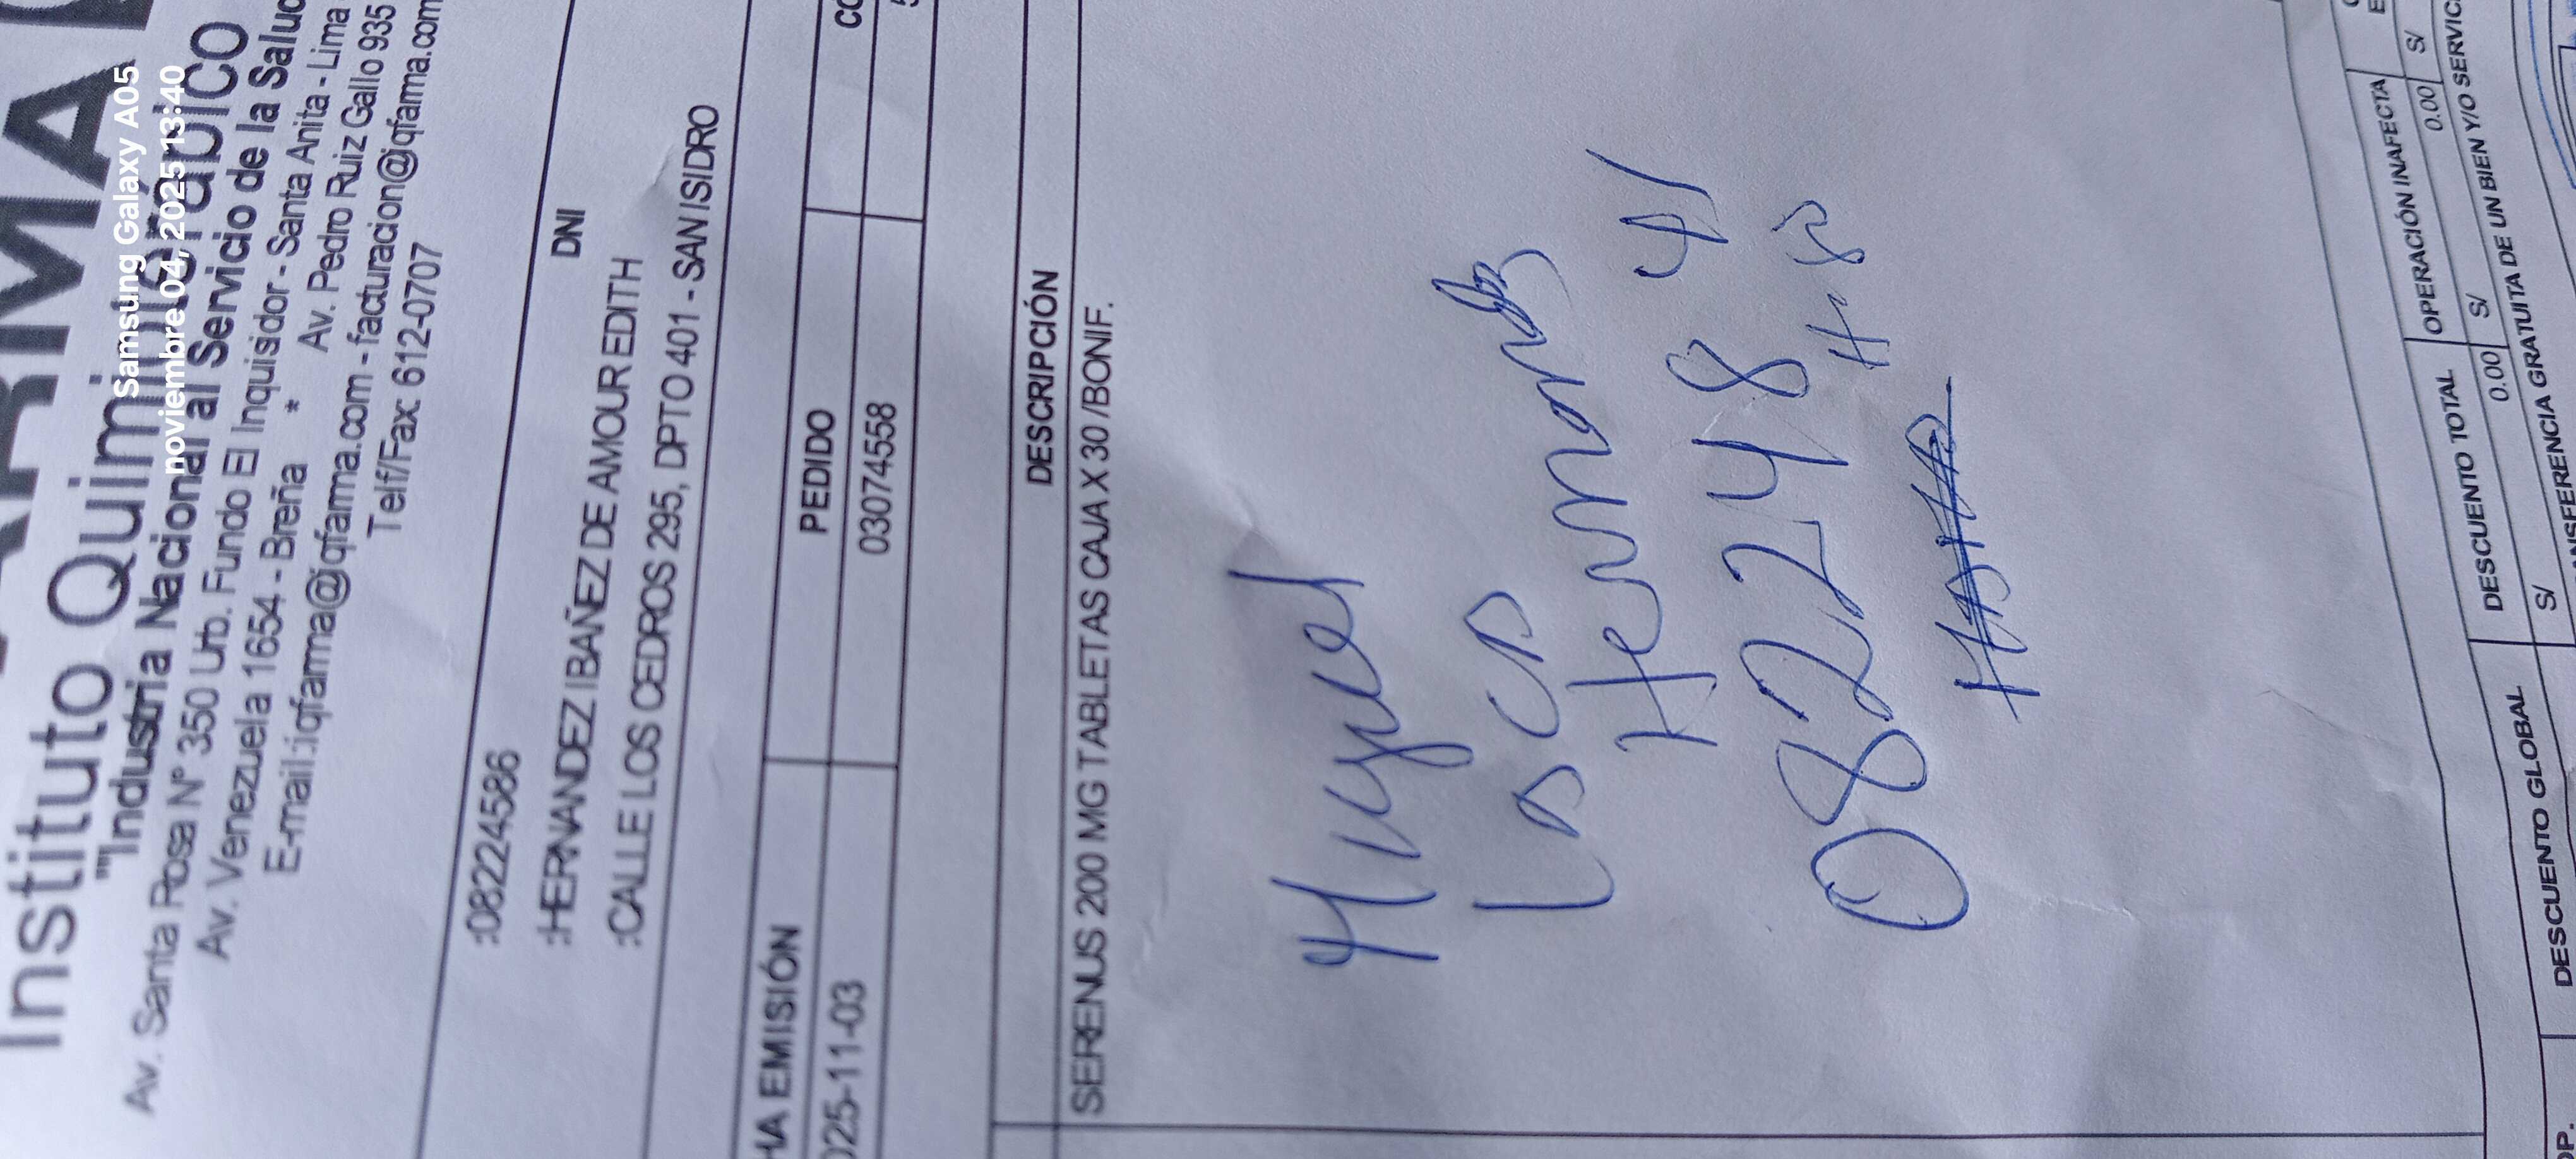 Samsung Galaxy A05
noviembre 04, 2025 13:40
Instituto Quimioterápico
""Industria Nacional al Servicio de la Salud
Av. Santa Rosa Nº 350 Urb. Fundo El Inquisidor - Santa Anita - Lima
Av. Venezuela 1654 - Breña * Av. Pedro Ruiz Gallo 935
E-mail:iqfarma@iqfarma.com - facturacion@iqfarma.com
Telf/Fax: 612-0707
:08224586 DNI
:HERNANDEZ IBAÑEZ DE AMOUR EDITH
:CALLE LOS CEDROS 295, DPTO 401 - SAN ISIDRO
HA EMISIÓN PEDIDO CO
025-11-03 03074558
DESCRIPCIÓN
SERENUS 200 MG TABLETAS CAJA X 30 /BONIF.
Miguel
08224841
DESCUENTO GLOBAL DESCUENTO TOTAL OPERACIÓN INAFECTA
S/ 0.00 S/ 0.00 S/
NSFERENCIA GRATUITA DE UN BIEN Y/O SERVIC